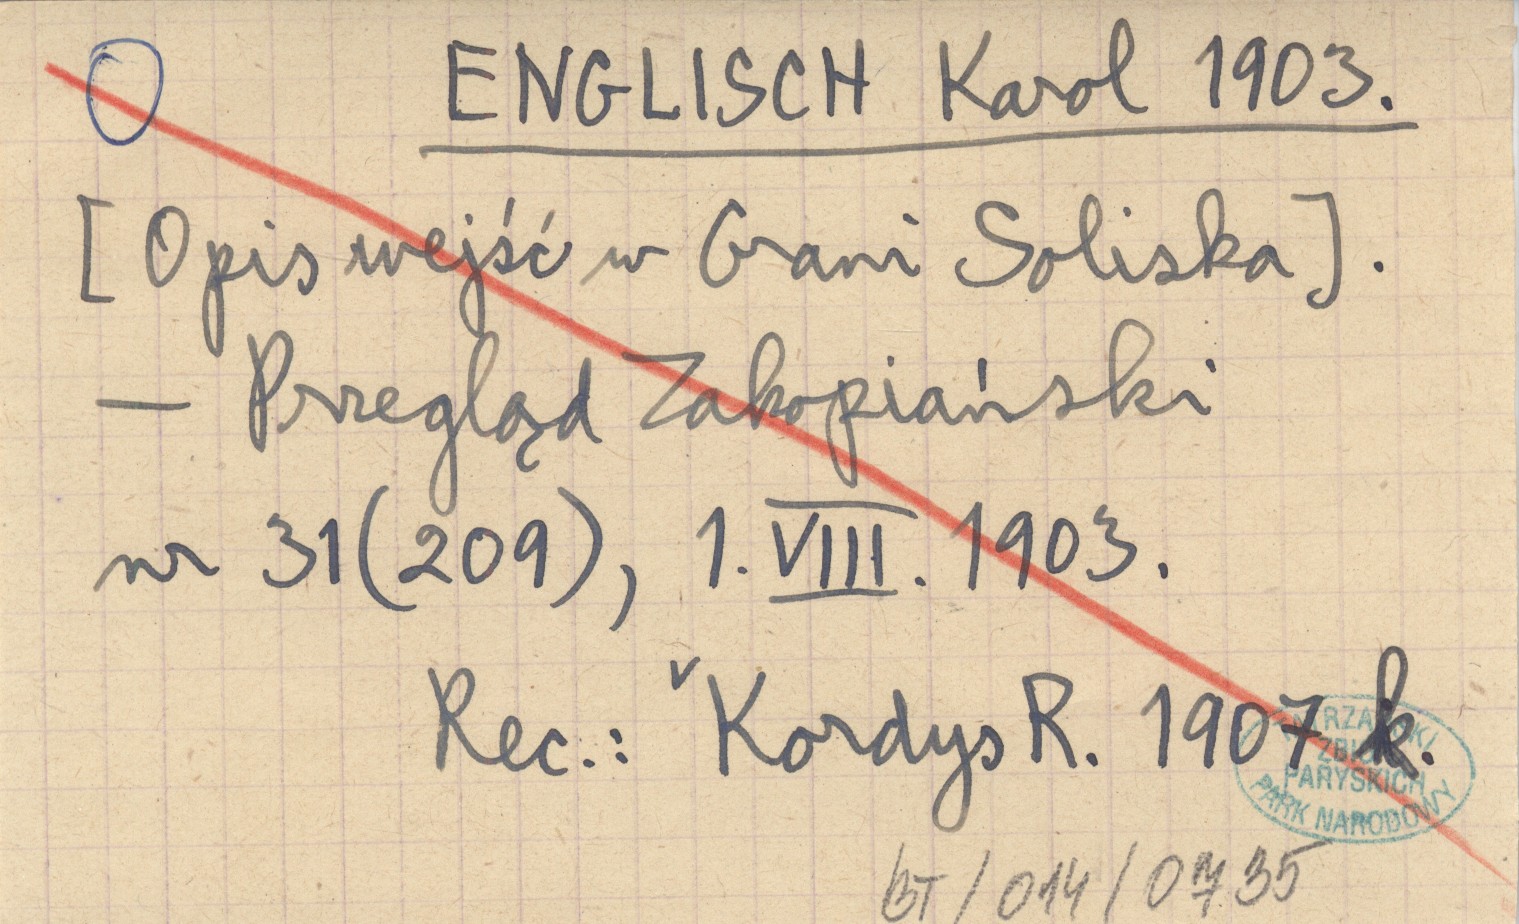 ENGLISCH Karol 1903.
[Opis wejść w Grani Soliska].
— Przegląd Zakopiański
nr 31(209), 1. VIII. 1903.
Rec.: ˅Kordys R. 1907 k.
TATRZAŃSKI
ZBIORY
PARYSKICH
PARK NARODOWY
BT/014/0735